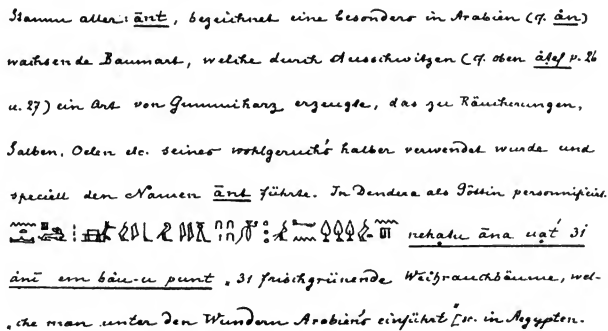 Stamm aller: ānt, bezeichnet eine besonders in Arabien (cf. ān)
wachsende Baumart, welche durch Ausschwitzen (cf. oben p. 26
u. 27) ein Art von Gummiharz erzeugte, das zu Räucherungen,
Salben, Oelen etc. seines wohlgeruchs halber verwendet wurde und
speciell den Namen ānt führte. In Dendera als Göttin personnificirt.
nehatu āna uaṭ 31
ānī em bău-u punt „31 frischgrünende Weihrauchbäume, wel-
„che man unter den Wundern Arabien's einführt" [sc. in Aegypten.